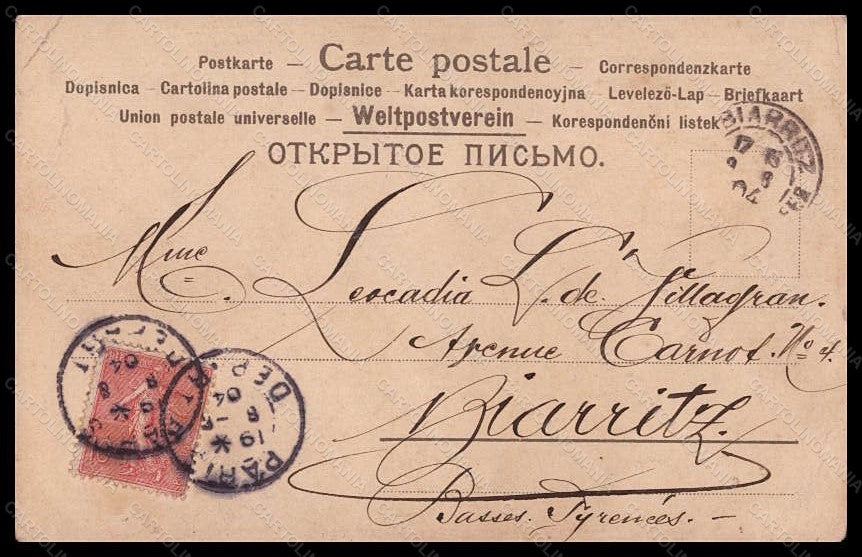 Postkarte — Carte postale — Correspondenzkarte
Dopisnica — Cartolina postale — Dopisnice — Karta korespondencyjna — Levelező-Lap — Briefkaart
Union postale universelle — Weltpostverein — Korespondenční listek
ОТКРЫТОЕ ПИСЬМО.
BIARRITZ
17 15
9 8
04
Mme
Leocadia L. de Villagran.
Avenue Carnot. No 4.
Biarritz.
Basses. Pyrenées. —
PARIS
DEPART
04
PARIS
DEPART
8
04
19
CARTOLINOMANIA